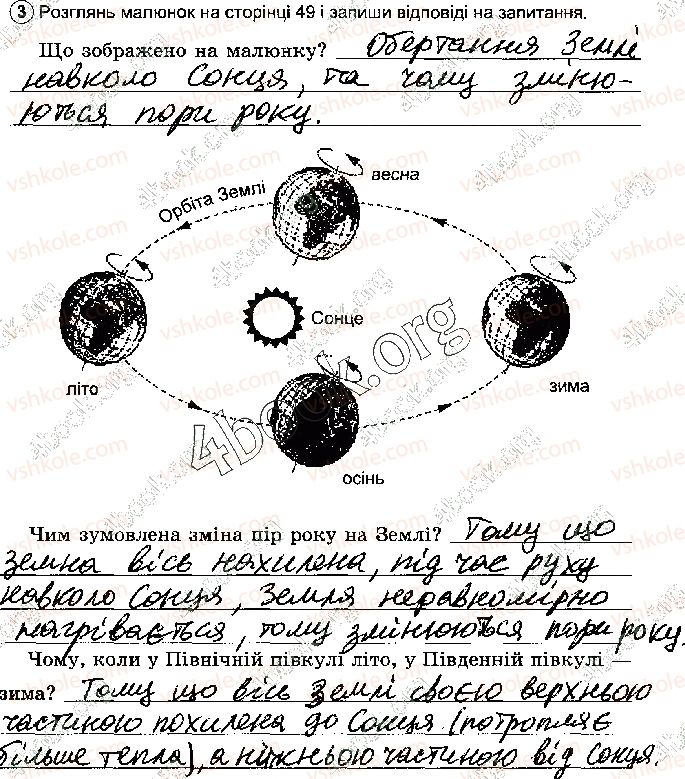 3 Розглянь малюнок на сторінці 49 і запиши відповіді на запитання.
Що зображено на малюнку? Обертання Землі
навколо Сонця, та чому зміню-
ються пори року.
весна
Орбіта Землі
Сонце
літо
зима
осінь
Чим зумовлена зміна пір року на Землі? Тому що
земна вісь нахилена, під час руху
навколо Сонця, Земля неравномірно
нагрівається, тому змінюються пори року.
Чому, коли у Північній півкулі літо, у Південній півкулі —
зима? Тому що вісь Землі своєю верхньою
частиною похилена до Сонця (потропляє
більше тепла), а нижньою частиною від Сонця.
4book.org
vshkole.com